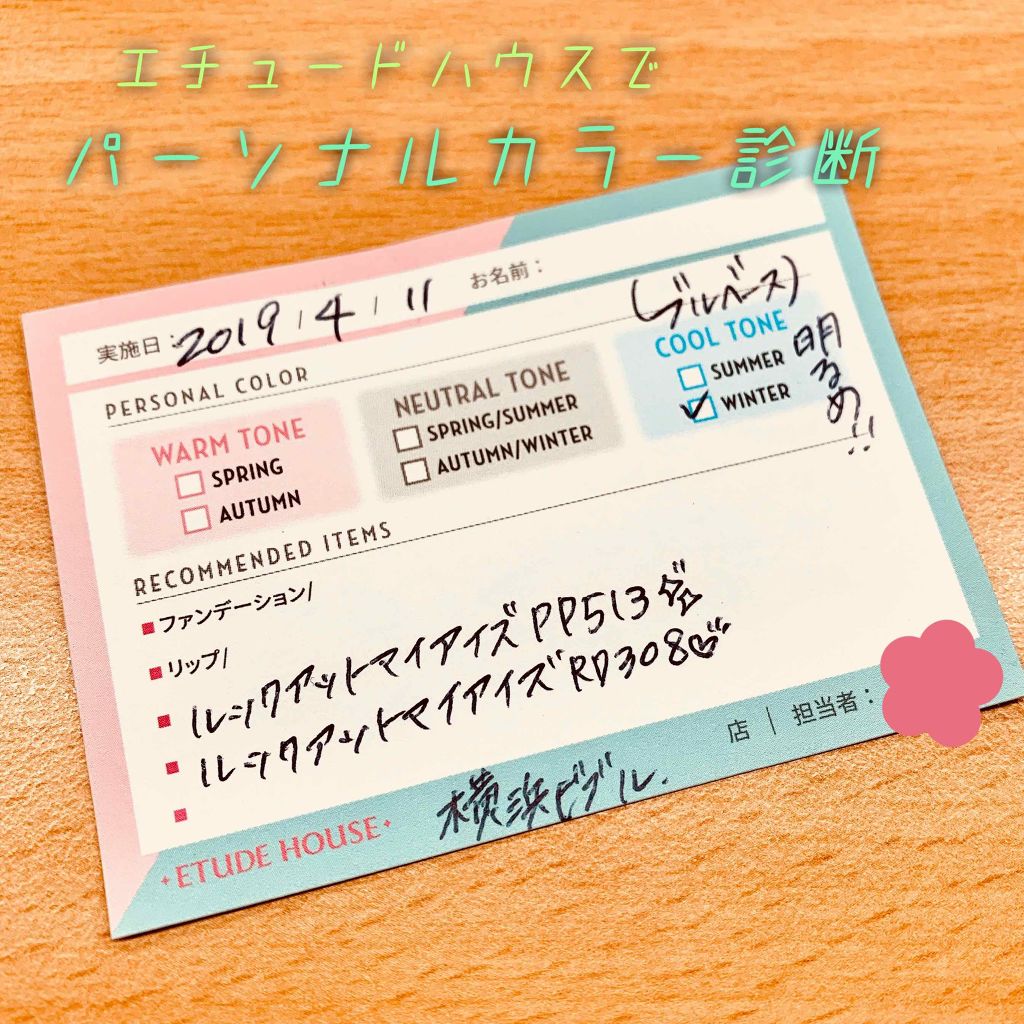 エチュードハウスで
パーソナルカラー診断
実施日：2019 / 4 / 11 お名前：
PERSONAL COLOR
(ブルベース)
WARM TONE
SPRING
AUTUMN
NEUTRAL TONE
SPRING/SUMMER
AUTUMN/WINTER
COOL TONE
SUMMER
WINTER
明るめ!!
RECOMMENDED ITEMS
ファンデーション/
リップ/
ルックアットマイアイズ PP513
ルックアットマイアイズ RD308
店 | 担当者：
横浜ビブル.
ETUDE HOUSE